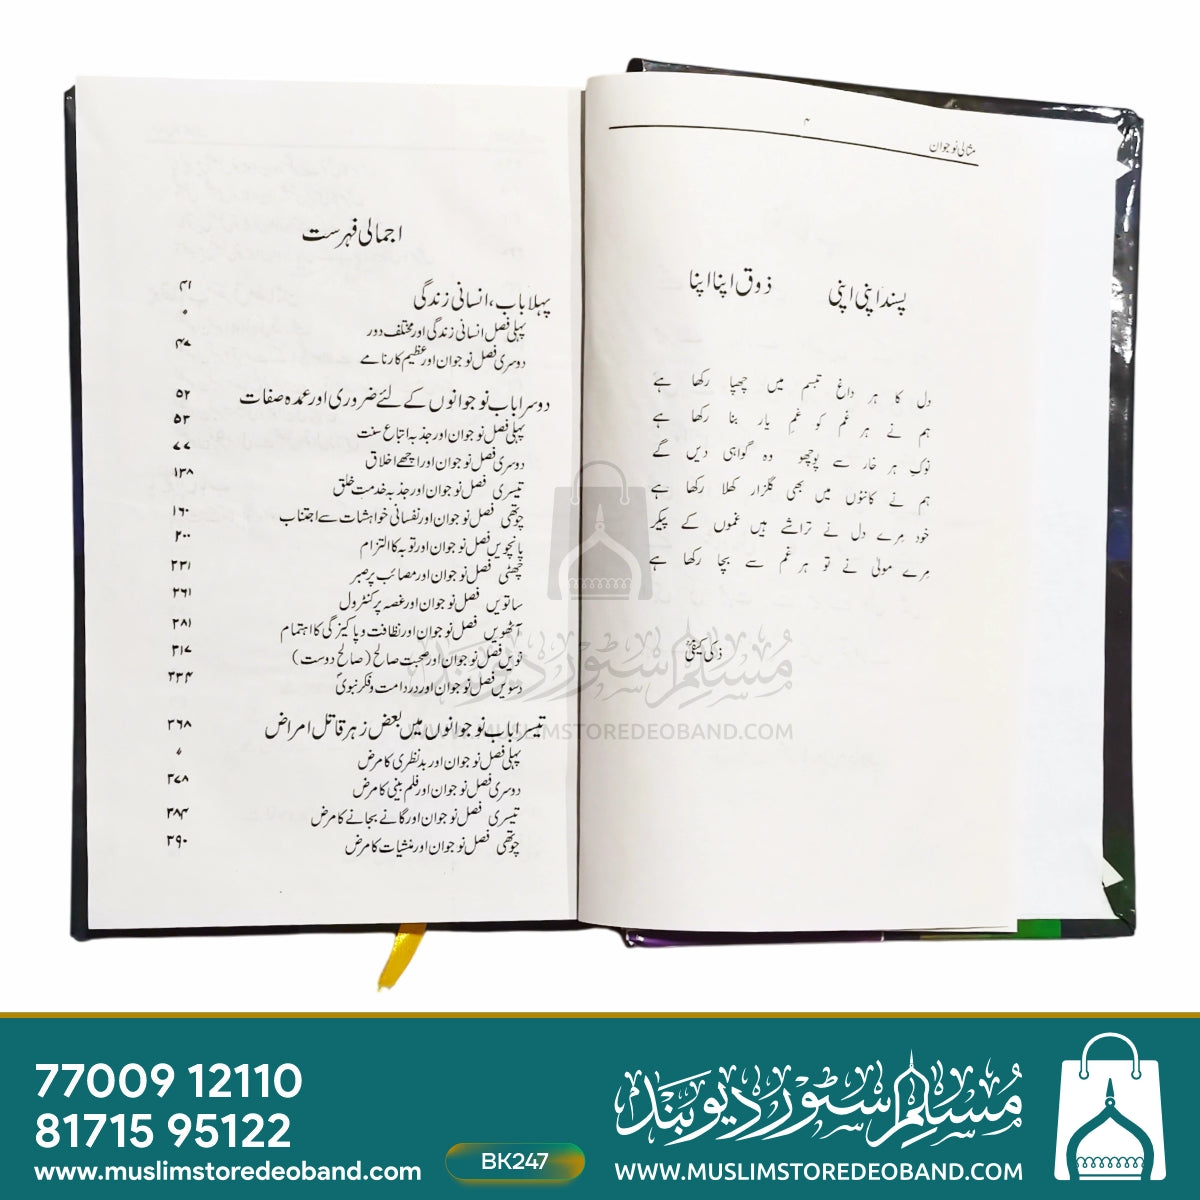 مثالی نوجوان
۴
پسند اپنی اپنی ذوق اپنا اپنا
دل کا ہر داغ تبسم میں چھپا رکھا ہے
ہم نے ہر غم کو غمِ یار بنا رکھا ہے
نوکِ ہر خار سے پوچھو وہ گواہی دیں گے
ہم نے کانٹوں میں بھی گلزار کھلا رکھا ہے
خود مِرے دل نے تراشے ہیں غموں کے پیکر
مِرے مولیٰ نے تو ہر غم سے بچا رکھا ہے
ذکی کیفیؒ
اجمالی فہرست
پہلا باب، انسانی زندگی ۴۱
پہلی فصل انسانی زندگی اور مختلف دور ۰
دوسری فصل نوجوان اور عظیم کارنامے ۴۷
دوسرا باب نوجوانوں کے لئے ضروری اور عمدہ صفات ۵۲
پہلی فصل نوجوان اور جذبہ اتباع سنت ۵۳
دوسری فصل نوجوان اور اچھے اخلاق ۷۷
تیسری فصل نوجوان اور جذبہ خدمت خلق ۱۳۸
چوتھی فصل نوجوان اور نفسانی خواہشات سے اجتناب ۱۶۰
پانچویں فصل نوجوان اور توبہ کا التزام ۲۰۰
چھٹی فصل نوجوان اور مصائب پر صبر ۲۳۱
ساتویں فصل نوجوان اور غصہ پر کنٹرول ۲۶۱
آٹھویں فصل نوجوان اور نظافت و پاکیزگی کا اہتمام ۲۸۱
نویں فصل نوجوان اور صحبت صالح (صالح دوست) ۳۱۷
دسویں فصل نوجوان اور درد امت و فکر نبوی ۳۳۴
تیسرا باب نوجوانوں میں بعض زہر قاتل امراض ۳۶۸
پہلی فصل نوجوان اور بدنظری کا مرض
دوسری فصل نوجوان اور فلم بینی کا مرض ۳۷۸
تیسری فصل نوجوان اور گانے بجانے کا مرض ۳۸۴
چوتھی فصل نوجوان اور منشیات کا مرض ۳۹۰
مسلم سٹور دیوبند
WWW.MUSLIMSTOREDEOBAND.COM
77009 12110
81715 95122
www.muslimstoredeoband.com
BK247
مسلم سٹور دیوبند
WWW.MUSLIMSTOREDEOBAND.COM